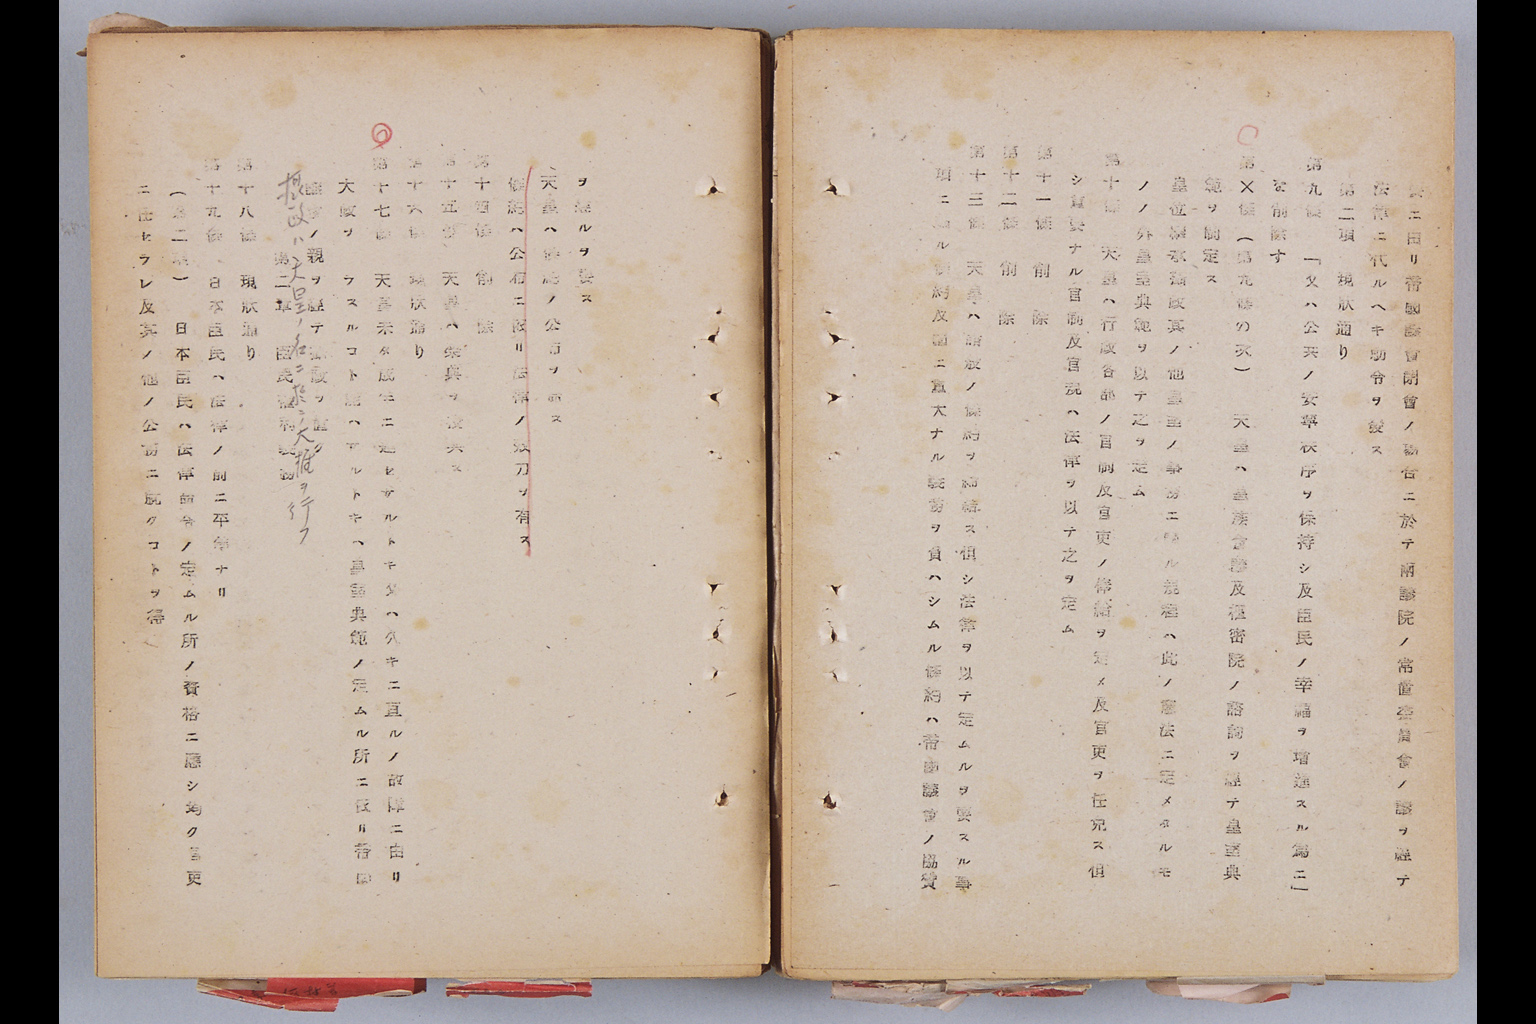 要ニ由リ帝國議會閉會ノ場合ニ於テ兩議院ノ常置委員會ノ議ヲ經テ
法律ニ代ルヘキ勅令ヲ發ス
第二項 現狀通り
第九條 「又ハ公共ノ安寧秩序ヲ保持シ及臣民ノ幸福ヲ增進スル爲ニ」
を削除す
第×條 (第九條の次) 天皇ハ皇族會議及樞密院ノ諮詢ヲ經テ皇室典
範ヲ制定ス
皇位繼承攝政其ノ他皇室ノ事務ニ關スル規程ハ此ノ憲法ニ定メタルモ
ノノ外皇室典範ヲ以テ之ヲ定ム
第十條 天皇ハ行政各部ノ官制及官吏ノ俸給ヲ定メ及官吏ヲ任免ス但
シ重要ナル官制及官規ハ法律ヲ以テ之ヲ定ム
第十一條 削 除
第十二條 削 除
第十三條 天皇ハ諸般ノ條約ヲ締結ス但シ法律ヲ以テ定ムルヲ要スル事
項ニ關ル條約及國ニ重大ナル義務ヲ負ハシムル條約ハ帝國議會ノ協贊
ヲ經ルヲ要ス
天皇ハ條約ノ公布ヲ命ス
條約ハ公布ニ依リ法律ノ效力ヲ有ス
第十四條 削 除
第十五條 天皇ハ榮典ヲ授與ス
第十六條 現狀通り
第十七條 天皇未タ成年ニ達セサルトキ又ハ久キニ亙ルノ故障ニ由リ
大政ヲ ラスルコト能ハサルトキハ皇室典範ノ定ムル所ニ依リ帝國
議會ノ 親ヲ經テ攝政ヲ置ク
攝政ハ天皇ノ名ニ於テ大權ヲ行フ
第二章 臣民權利義務
第十八條 現狀通り
第十九條 日本臣民ハ法律ノ前ニ平等ナリ
(第二項) 日本臣民ハ法律命令ノ定ムル所ノ資格ニ應シ均ク官吏
ニ任セラレ及其ノ他ノ公務ニ就クコトヲ得